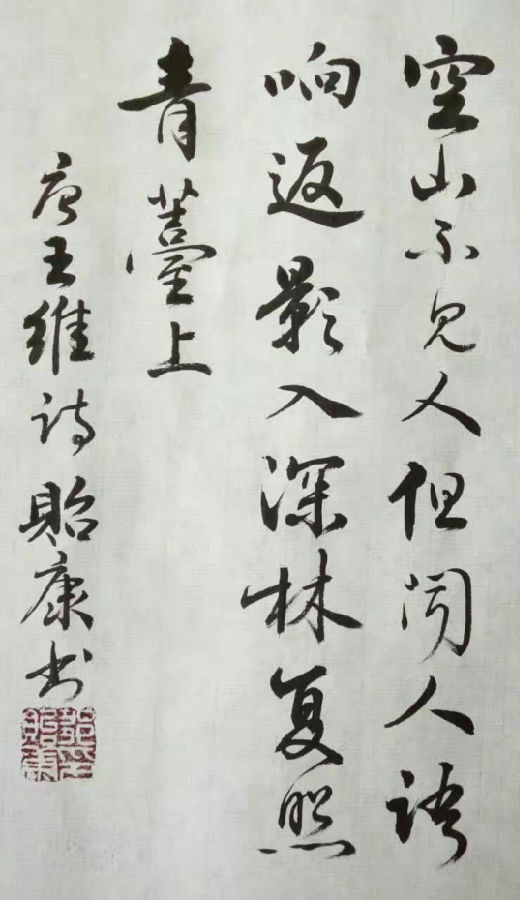 空山不见人但闻人语
响返影入深林复照
青薹上
唐王维诗贻康书